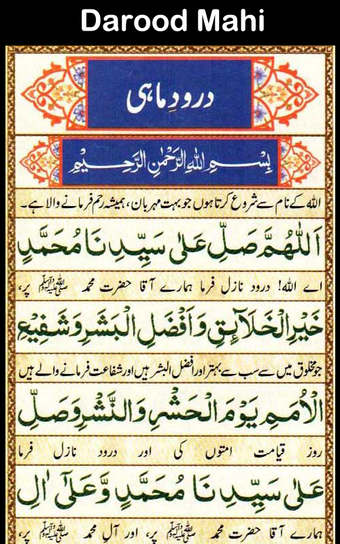 Darood Mahi
درودِ ماہی
بِسْمِ اللهِ الرَّحْمٰنِ الرَّحِيْمِ
اللہ کے نام سے شروع کرتا ہوں جو بہت مہربان، ہمیشہ رحم فرمانے والا ہے۔
اَللّٰهُمَّ صَلِّ عَلٰى سَيِّدِنَا مُحَمَّدٍ
اے اللہ! درود نازل فرما ہمارے آقا حضرت محمد ﷺ پر،
خَيْرِ الْخَلَآئِقِ وَاَفْضَلِ الْبَشَرِ وَشَفِيْعِ
جو مخلوق میں سے سب سے بہتر اور افضل البشر ہیں اور شفاعت فرمانے والے ہیں
الْاُمَمِ يَوْمَ الْحَشْرِ وَالنَّشْرِ وَصَلِّ
روز قیامت امتوں کی اور درود نازل فرما
عَلٰى سَيِّدِنَا مُحَمَّدٍ وَّعَلٰٓى اٰلِ
ہمارے آقا حضرت محمد ﷺ پر، اور آلِ محمد ﷺ پر،